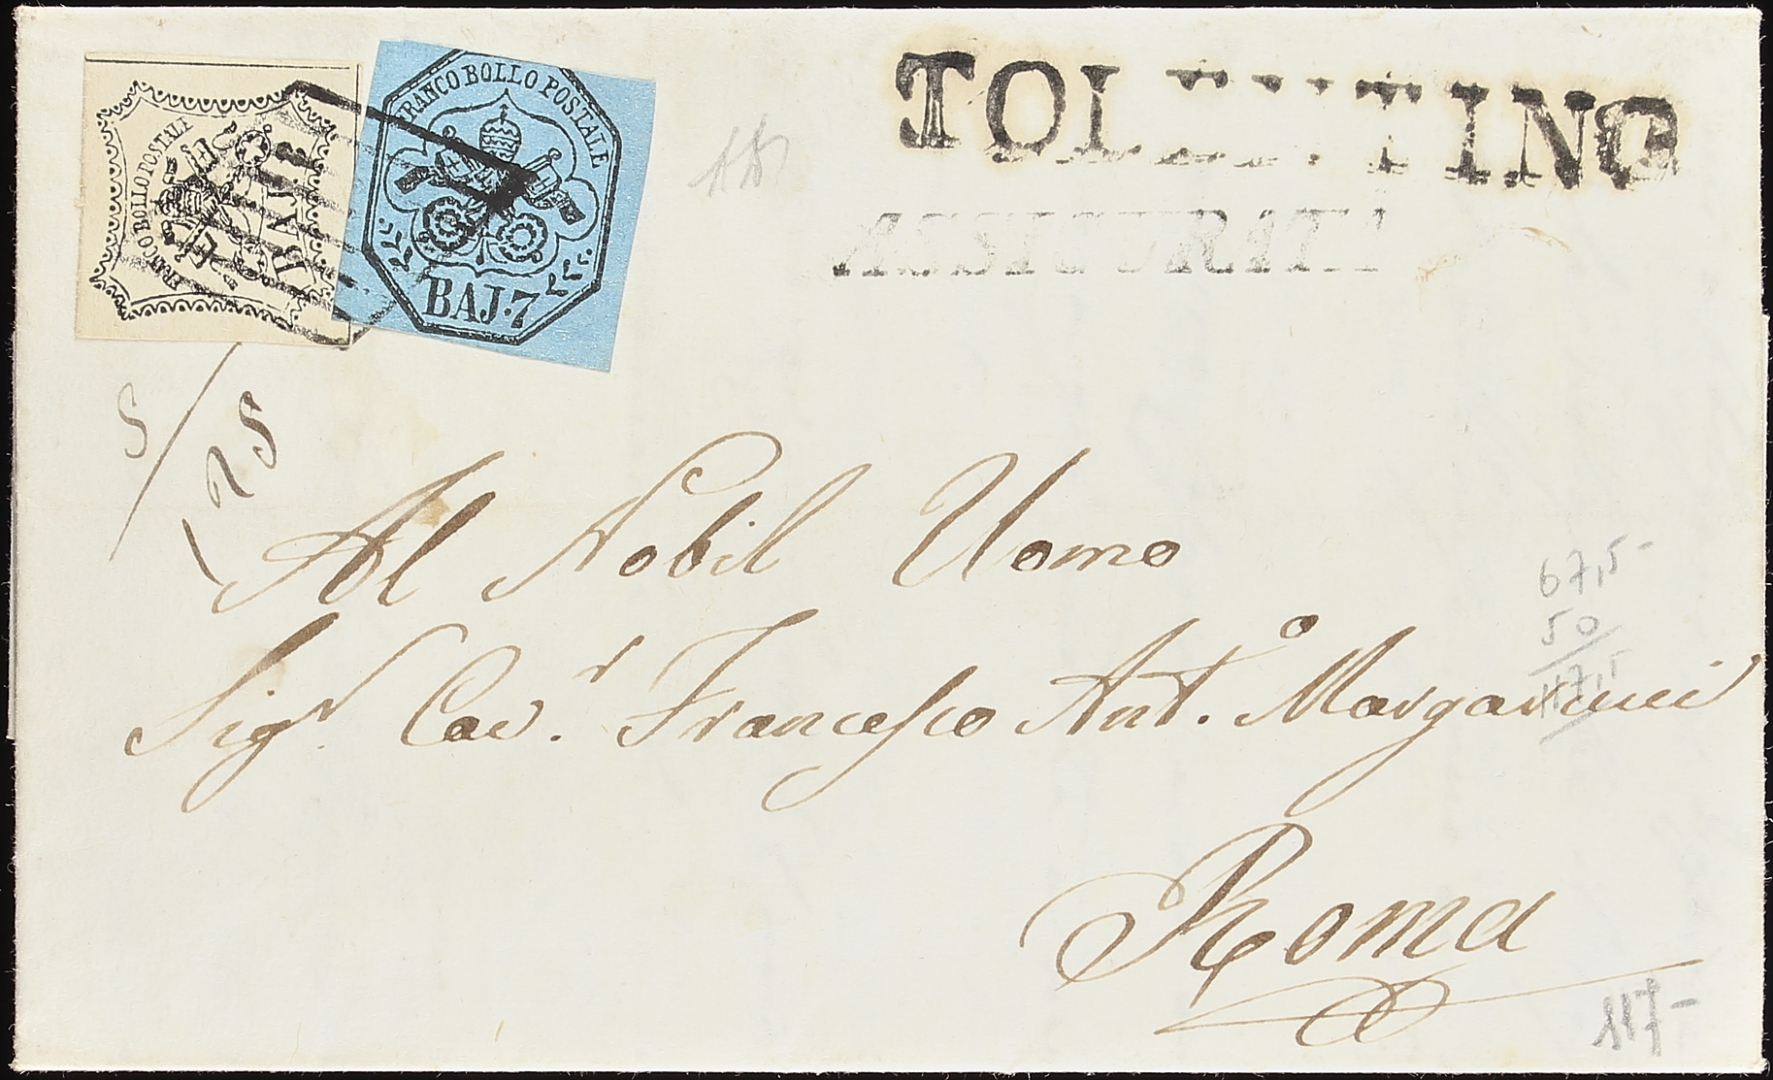 FRANCO BOLLO POSTALE
BAJ
FRANCO BOLLO POSTALE
BAJ.7
TOLENTINO
ASSICURATA
Al Nobil Uomo
Sigr. Cavr. Francesco Anto. Margarucci
Roma
67,5-
50
117,5
117-